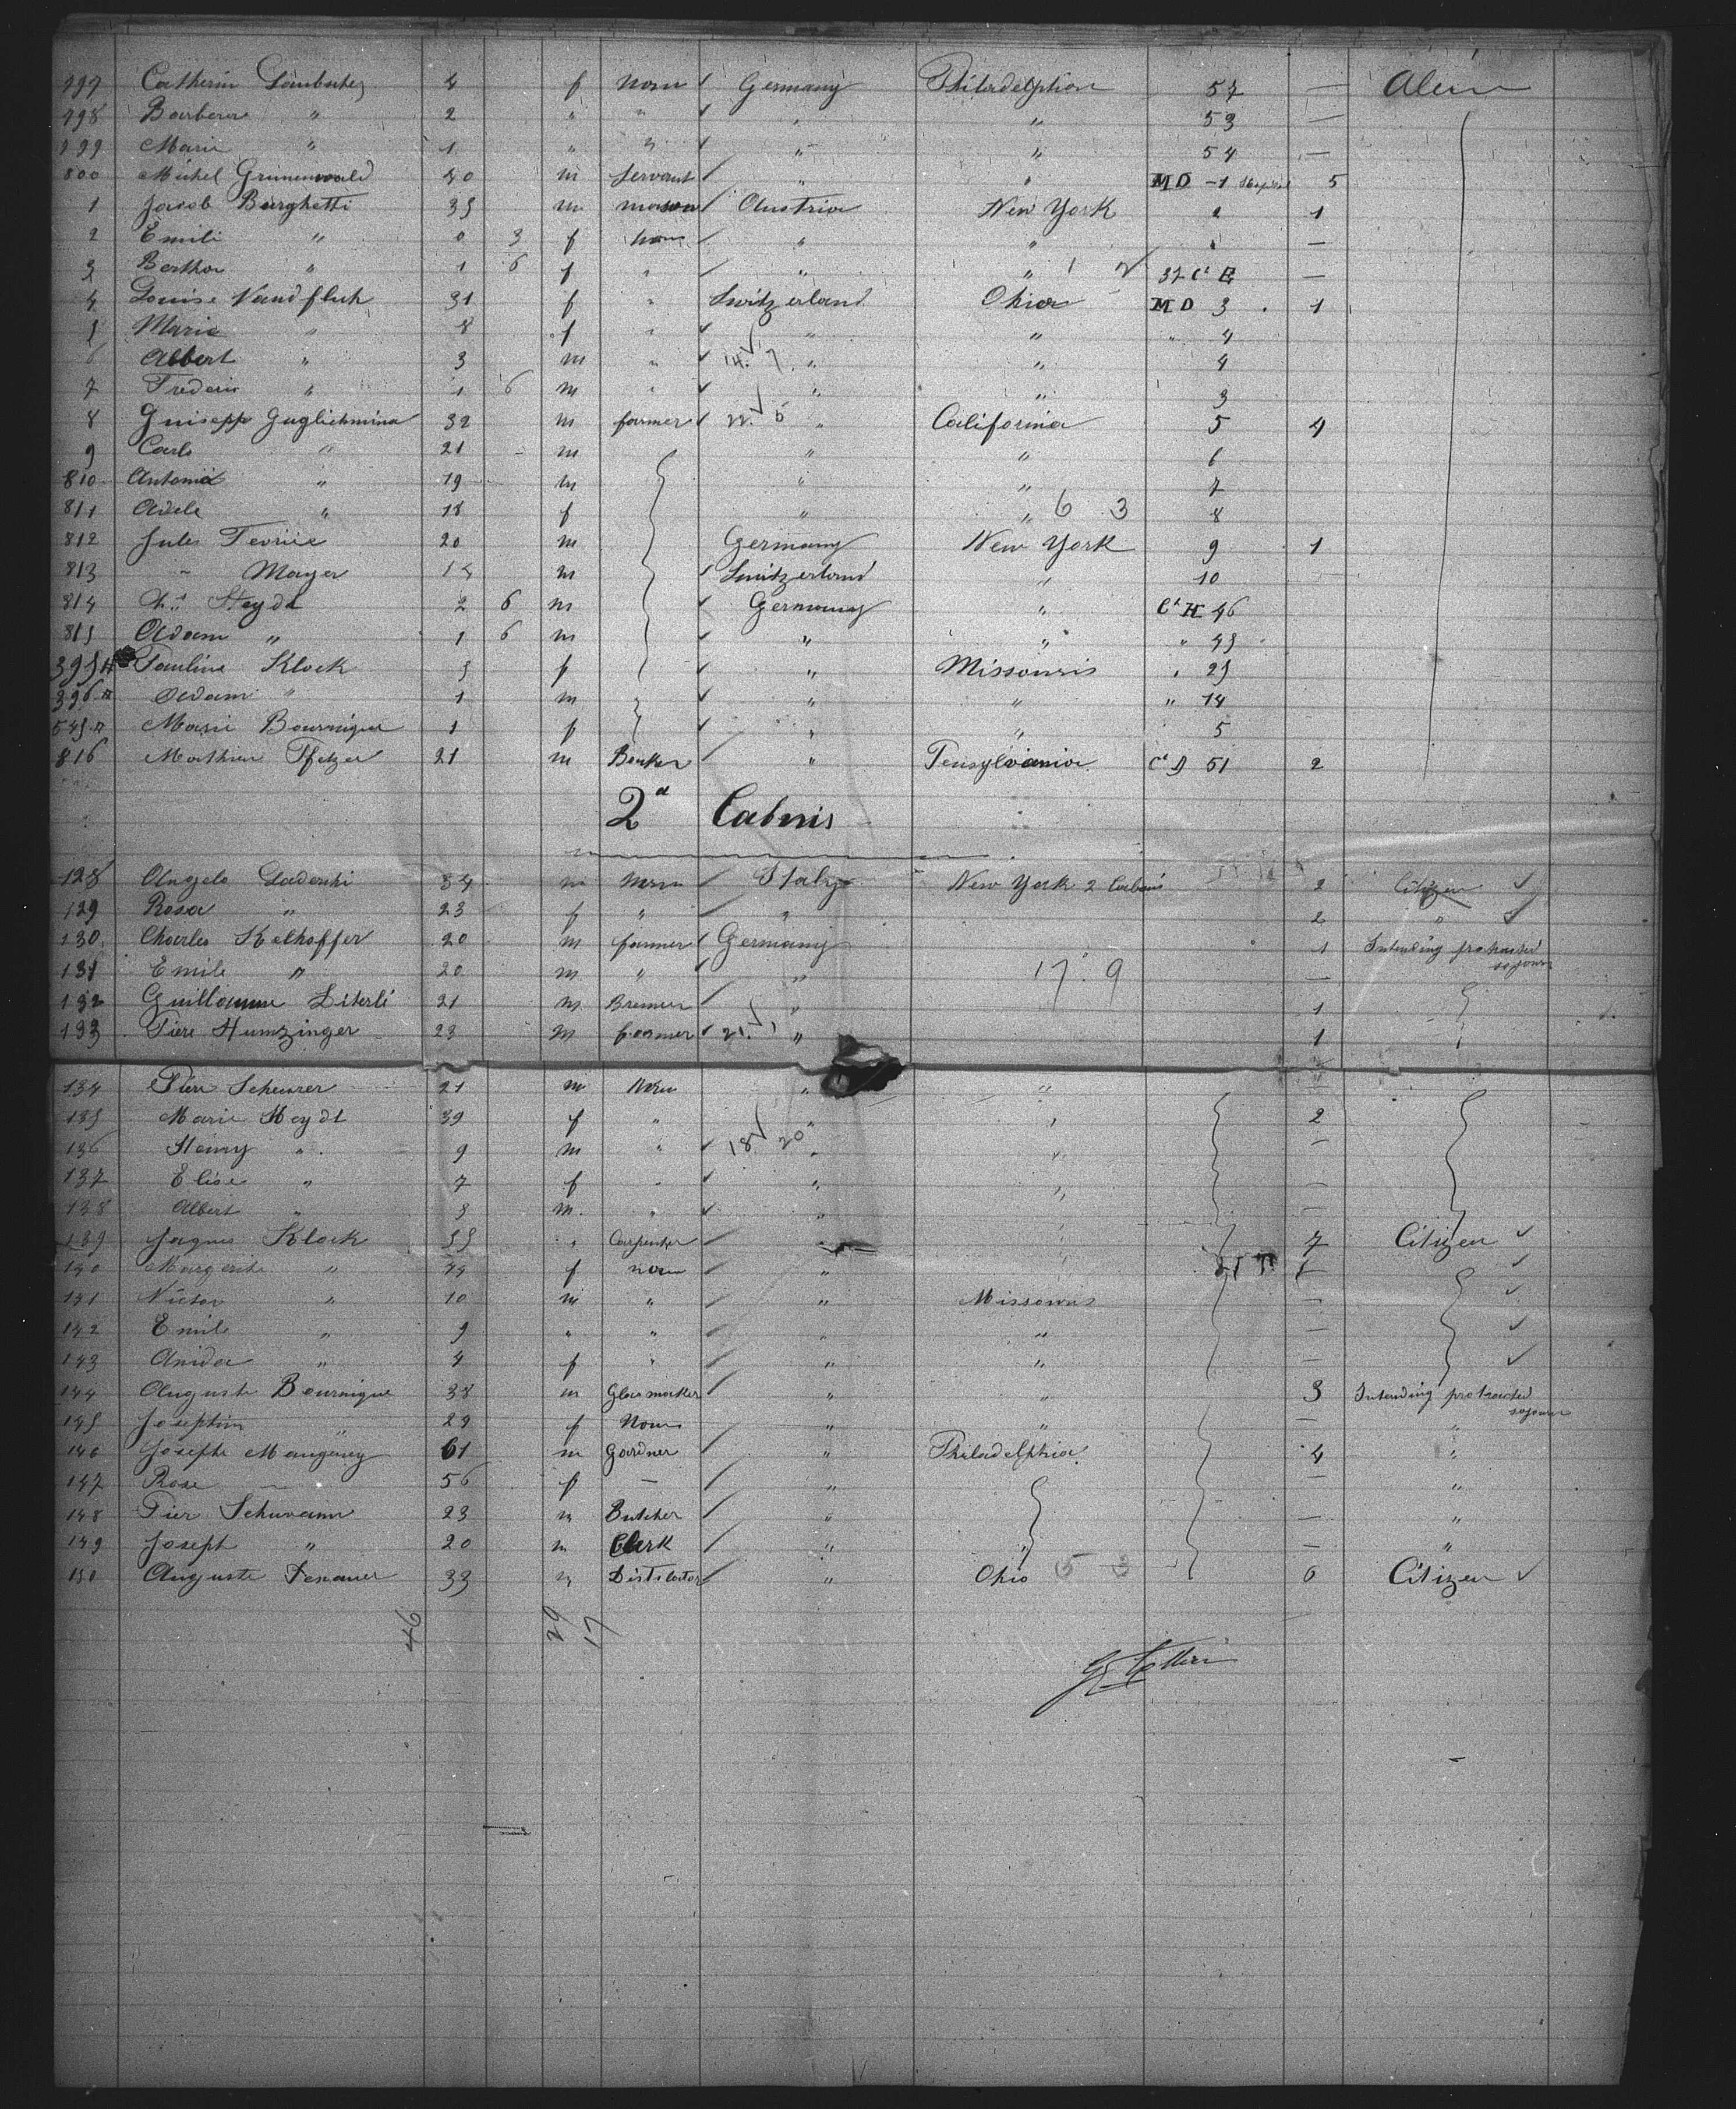 797 Catherin 4 f None Germany Philadelphia 57 — Alien
798 Barbera " 2 " " " " 53 —
799 Marie " 1 " " " " 54 —
800 Michel Grunenwald 40 m Servant " " MD -1 5
1 Jacob Barghetti 35 m mason Austria New York 2 1
2 Emili " 0 3 f None " " —
3 Bertha " 1 6 f " " " 1 37 Ct E —
4 Louise Vandfluh 31 f " Switzerland Ohio MD 3 1
5 Marie " 8 f " " " " 4
6 Albert " 3 m " 14. 7. " " 4
7 Frederic " 1 6 m " " " 3
8 Guiseppe Guglielmina 32 m farmer 22. 5 " California 5 4
9 Carlo " 21 m " " 6
810 Antonio " 19 m " " 7
811 Adele " 18 f " " 6 3 8
812 Jules 20 m Germany New York 9 1
813 - Mayer m Switzerland " 10
814 Heydt 2 6 m Germany " Ct H 46
815 Adam " 1 6 m " " " 45
395 Pauline Klock 5 f " Missouris " 25
396 Adam " 1 m " " " 14
545 Marie Bournique 1 f " " 5
816 Mathieu Pfetzer 21 m Banker " Pensylvania Ct D 51 2
2d Cabins
128 Angelo 34 m None Italy New York 2 Cabins 2 Citizen
129 Rosa " 23 f " " 2 "
130 Charles Kelhoffer 20 m farmer Germany 1 Intending protracted sojourn
131 Emile " 20 m " " 17. 9 —
132 Guillaume Diterlé 21 m Brewer " 1
133 Piere Humzinger 23 m farmer 21. 1 " 1
134 Piere Scheurer 21 m None " "
135 Marie Heydt 39 f " " " 2
136 Henry " 9 m " 18 20 " " —
137 Elise " 7 f " " " —
138 Albert " 5 m " " " —
139 Jaques Klock 55 " Carpenter " " 7 Citizen
140 Margerite " 45 f None "
141 Victor " 10 m " " Missouris —
142 Emile " 9 " " " " —
143 Anida " 4 f " " " —
144 Auguste Bournique 38 m Glasmaker " " 3 Intending protracted sojourn
145 Josephin " 29 f None " " — "
146 Josephe Mangeney 61 m Gardner " Philadelphia 4 "
147 Rose — 56 f — " — "
148 Pier Schwann 23 m Butcher " — "
149 Joseph " 20 m Clerk " " — "
150 Auguste 33 m " Ohio 5 3 6 Citizen
46 29 17